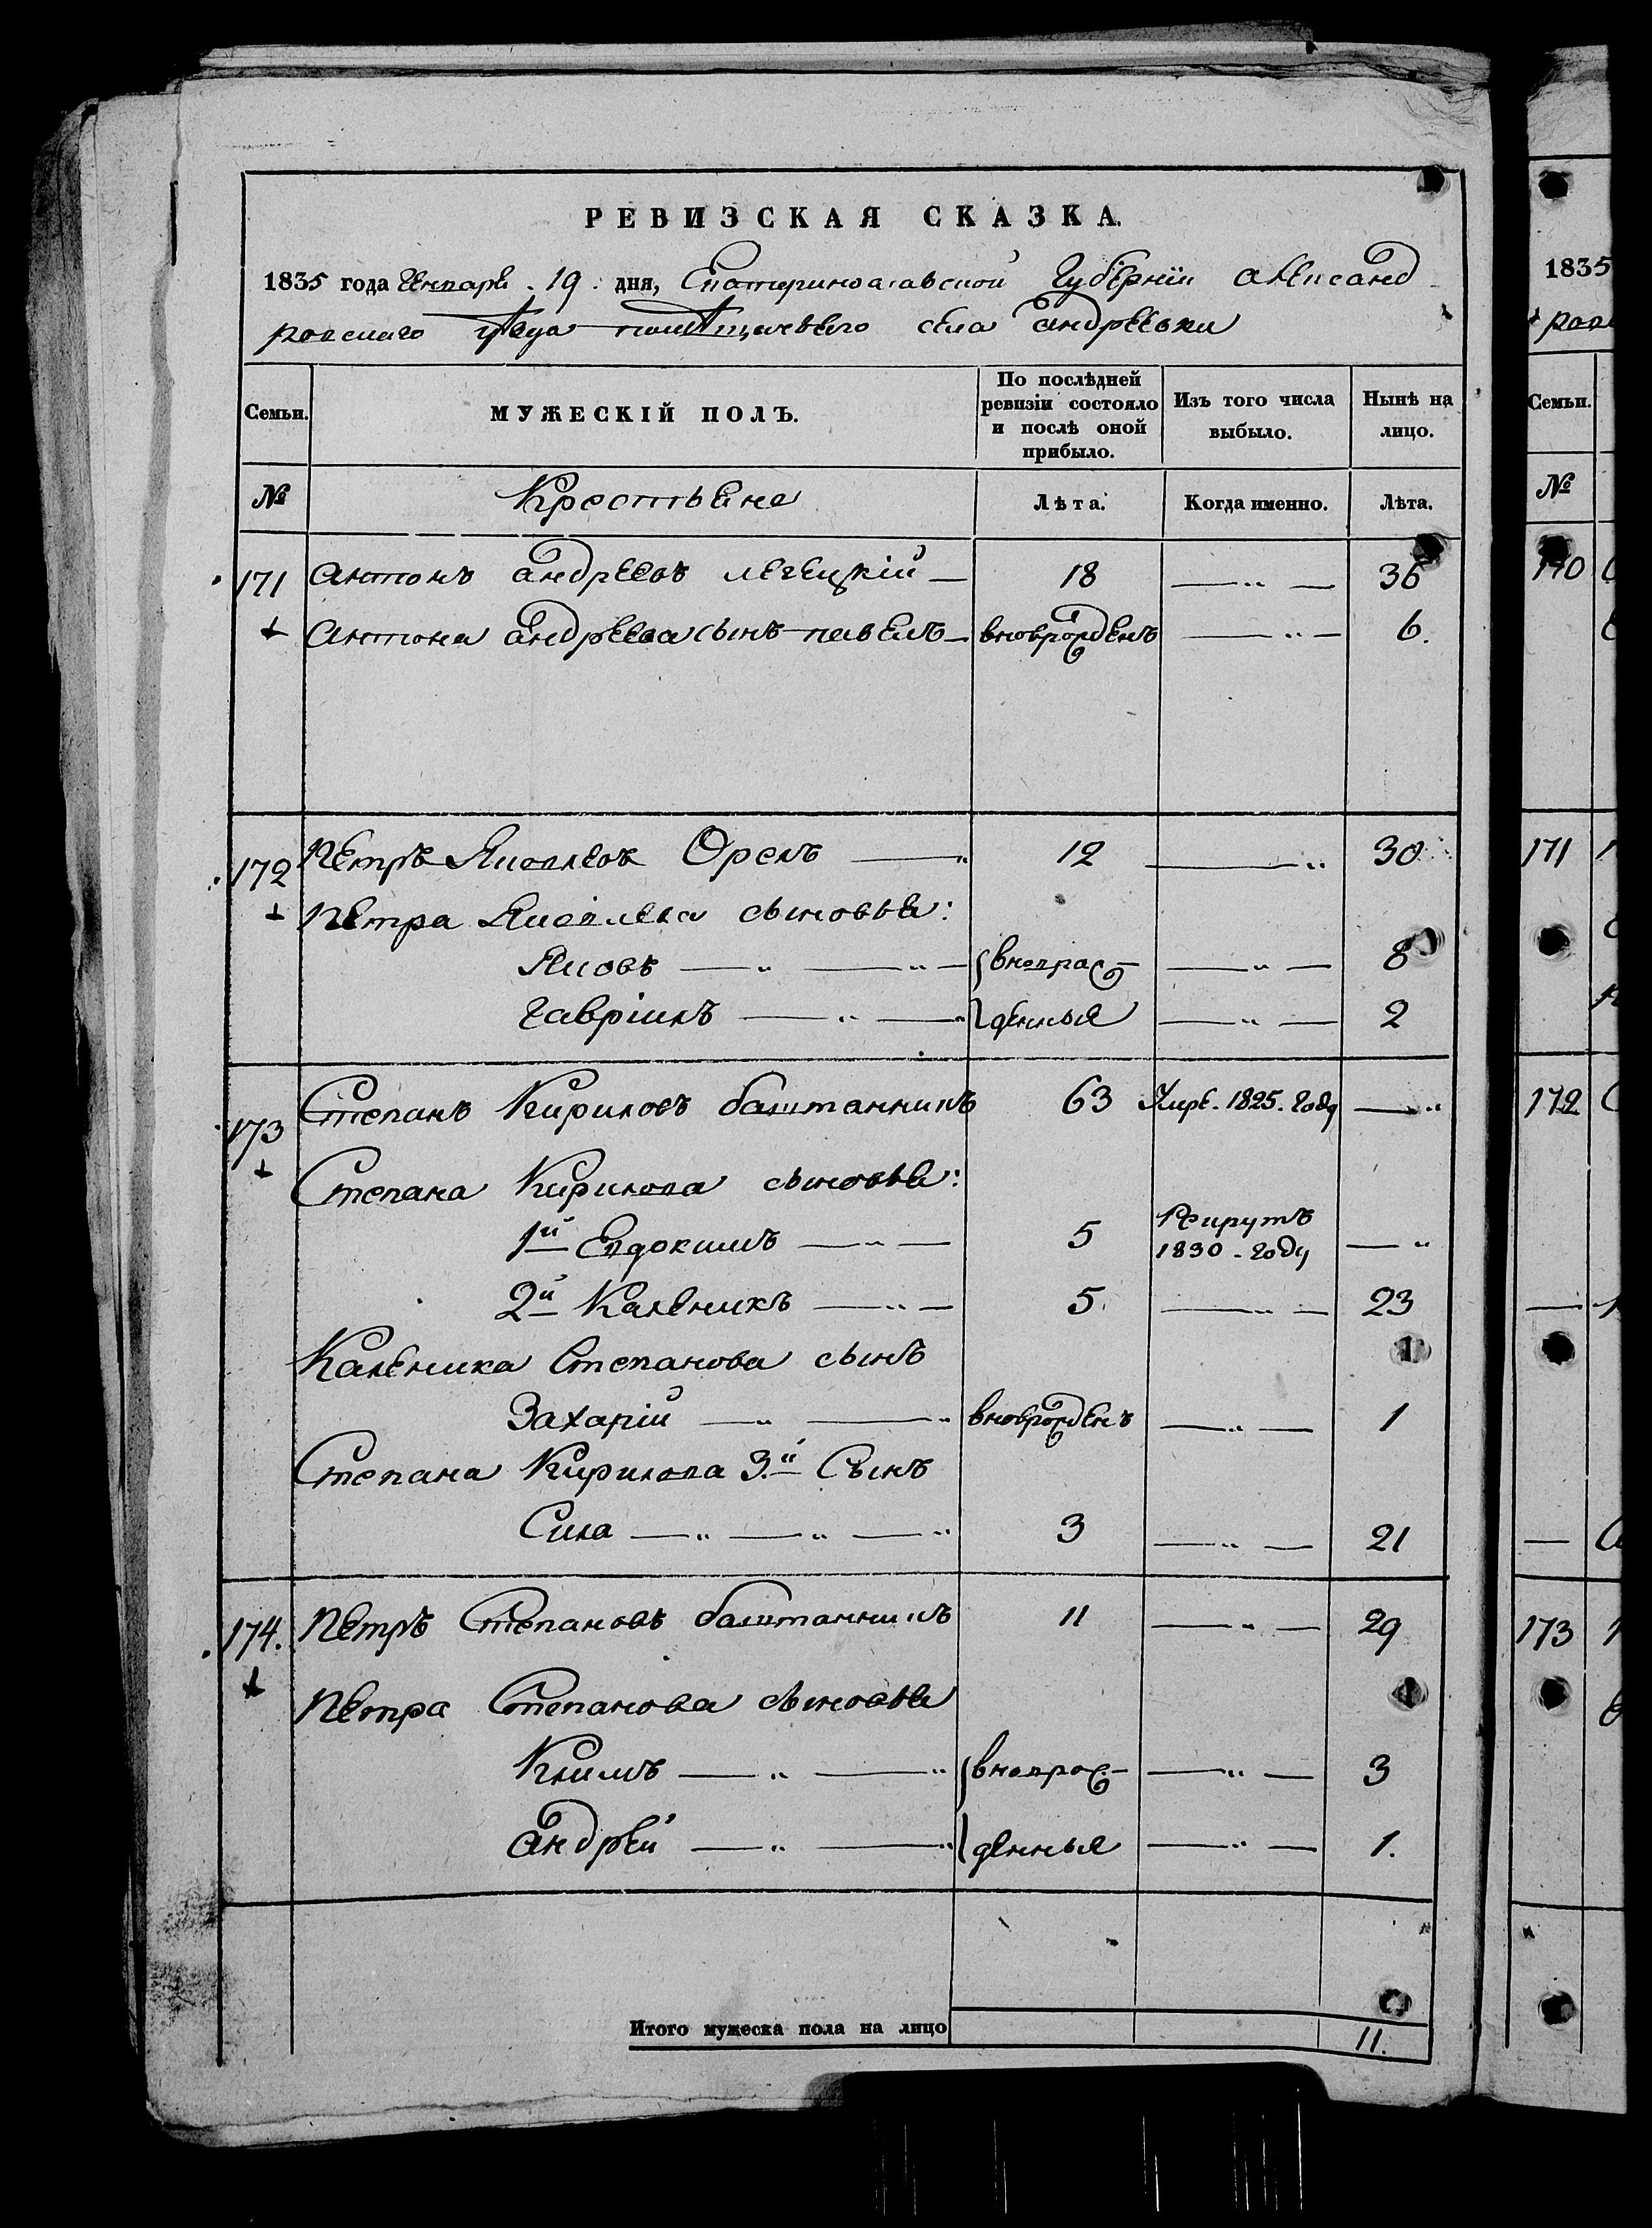 РЕВИЗСКАЯ СКАЗКА.
1835 года Генваря 19 дня, Екатеринославской Губерніи Александ
ровскаго уѣзда помѣщичьего села Андреевки
Семьи. МУЖЕСКІЙ ПОЛЪ. По послѣдней ревизіи состояло и послѣ оной прибыло. Изъ того числа выбыло. Нынѣ на лицо.
№ Крестьяне Лѣта. Когда именно. Лѣта.
171 Антонъ Андреевъ — 18 — „ — 36
Антона Андреева сынъ Павелъ — вноврожденъ — „ — 6.
172 Петръ Яковлевъ Орелъ — „ 12 — „ 30
Петра Яковлева сыновья:
Яковъ — „ — „ — вновраж — „ — 8
Гавріилъ — „ — „ денныя — „ — 2
173 Степанъ Кириловъ Баштанникъ 63 Умре. 1825. году — „
Степана Кирилова сыновья:
1й Евдокимъ — „ — 5 Рекрутъ 1830 году — „
2й Каленикъ — „ — 5. — „ — 23
Каленика Степанова сынъ
Захарій — „ — „ вноврожденъ — „ — 1
Степана Кирилова 3й Сынъ
Сила — „ — „ — „ 3 — „ — 21
174. Петръ Степановъ Баштанникъ 11 — „ — 29
Петра Степанова сыновья
Климъ — „ — „ вновраж — „ — 3
Андрей — „ — „ денныя — „ — 1.
Итого мужеска пола на лицо 11.
1835
Семьи.
№
170
171
172
173